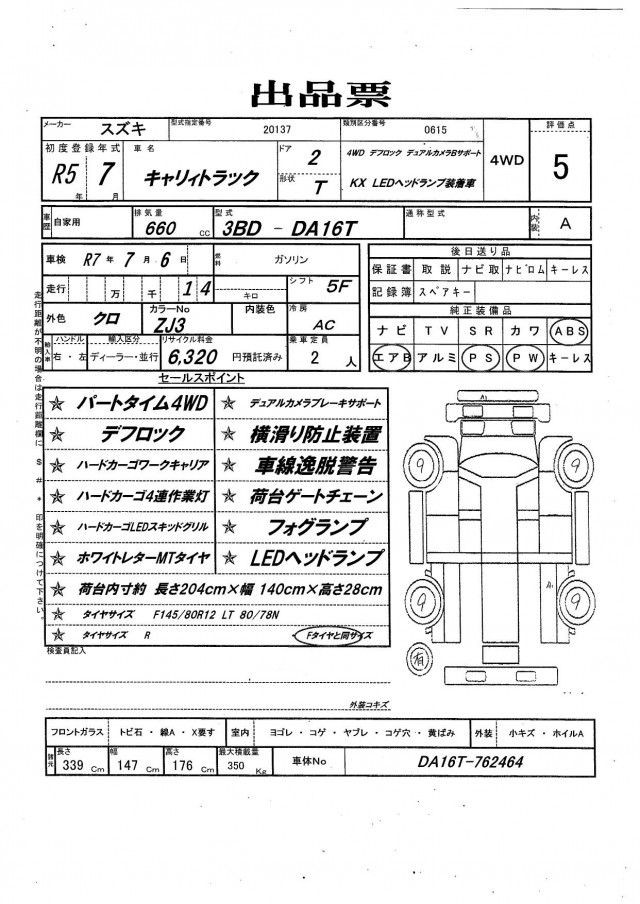 出品票
メーカー スズキ 型式指定番号 20137 類別区分番号 0615 評価点
初度登録年式 車名 ドア 2 4WD デフロック デュアルカメラBサポート 4WD 5
R5年 7月 キャリィトラック 形状 T KX LEDヘッドランプ装着車
車歴 自家用 排気量 660 cc 型式 3BD - DA16T 通称型式 内装 A
車検 R7年 7月 6日 燃料 ガソリン 後日送り品
保証書 取説 ナビ取 ナビロム キーレス
走行 万 千 1 4 キロ シフト 5F 記録簿 スペアキー
外色 クロ カラーNo ZJ3 内装色 冷房 AC 純正装備品
ナビ TV SR カワ ABS
輸入車 ハンドル 右・左 輸入区分 ディーラー・並行 リサイクル料金 6,320 円預託済み 乗車定員 2人 エアB アルミ PS PW キーレス
走行距離が不明の場合は走行距離欄に $ # * 印を明確につけて下さい。
セールスポイント
パートタイム4WD デュアルカメラブレーキサポート
デフロック 横滑り防止装置
ハードカーゴワークキャリア 車線逸脱警告
ハードカーゴ4連作業灯 荷台ゲートチェーン
ハードカーゴLEDスキッドグリル フォグランプ
ホワイトレターMTタイヤ LEDヘッドランプ
荷台内寸約 長さ204cm×幅 140cm×高さ28cm
タイヤサイズ F145/80R12 LT 80/78N
タイヤサイズ R Fタイヤと同サイズ
A1
9 9
A1
9 9
有
検査員記入
外装コキズ
フロントガラス トビ石・線A・X要す 室内 ヨゴレ・コゲ・ヤブレ・コゲ穴・黄ばみ 外装 小キズ・ホイルA
諸元 長さ 339 Cm 幅 147 Cm 高さ 176 Cm 最大積載量 350 Kg 車体No DA16T-762464